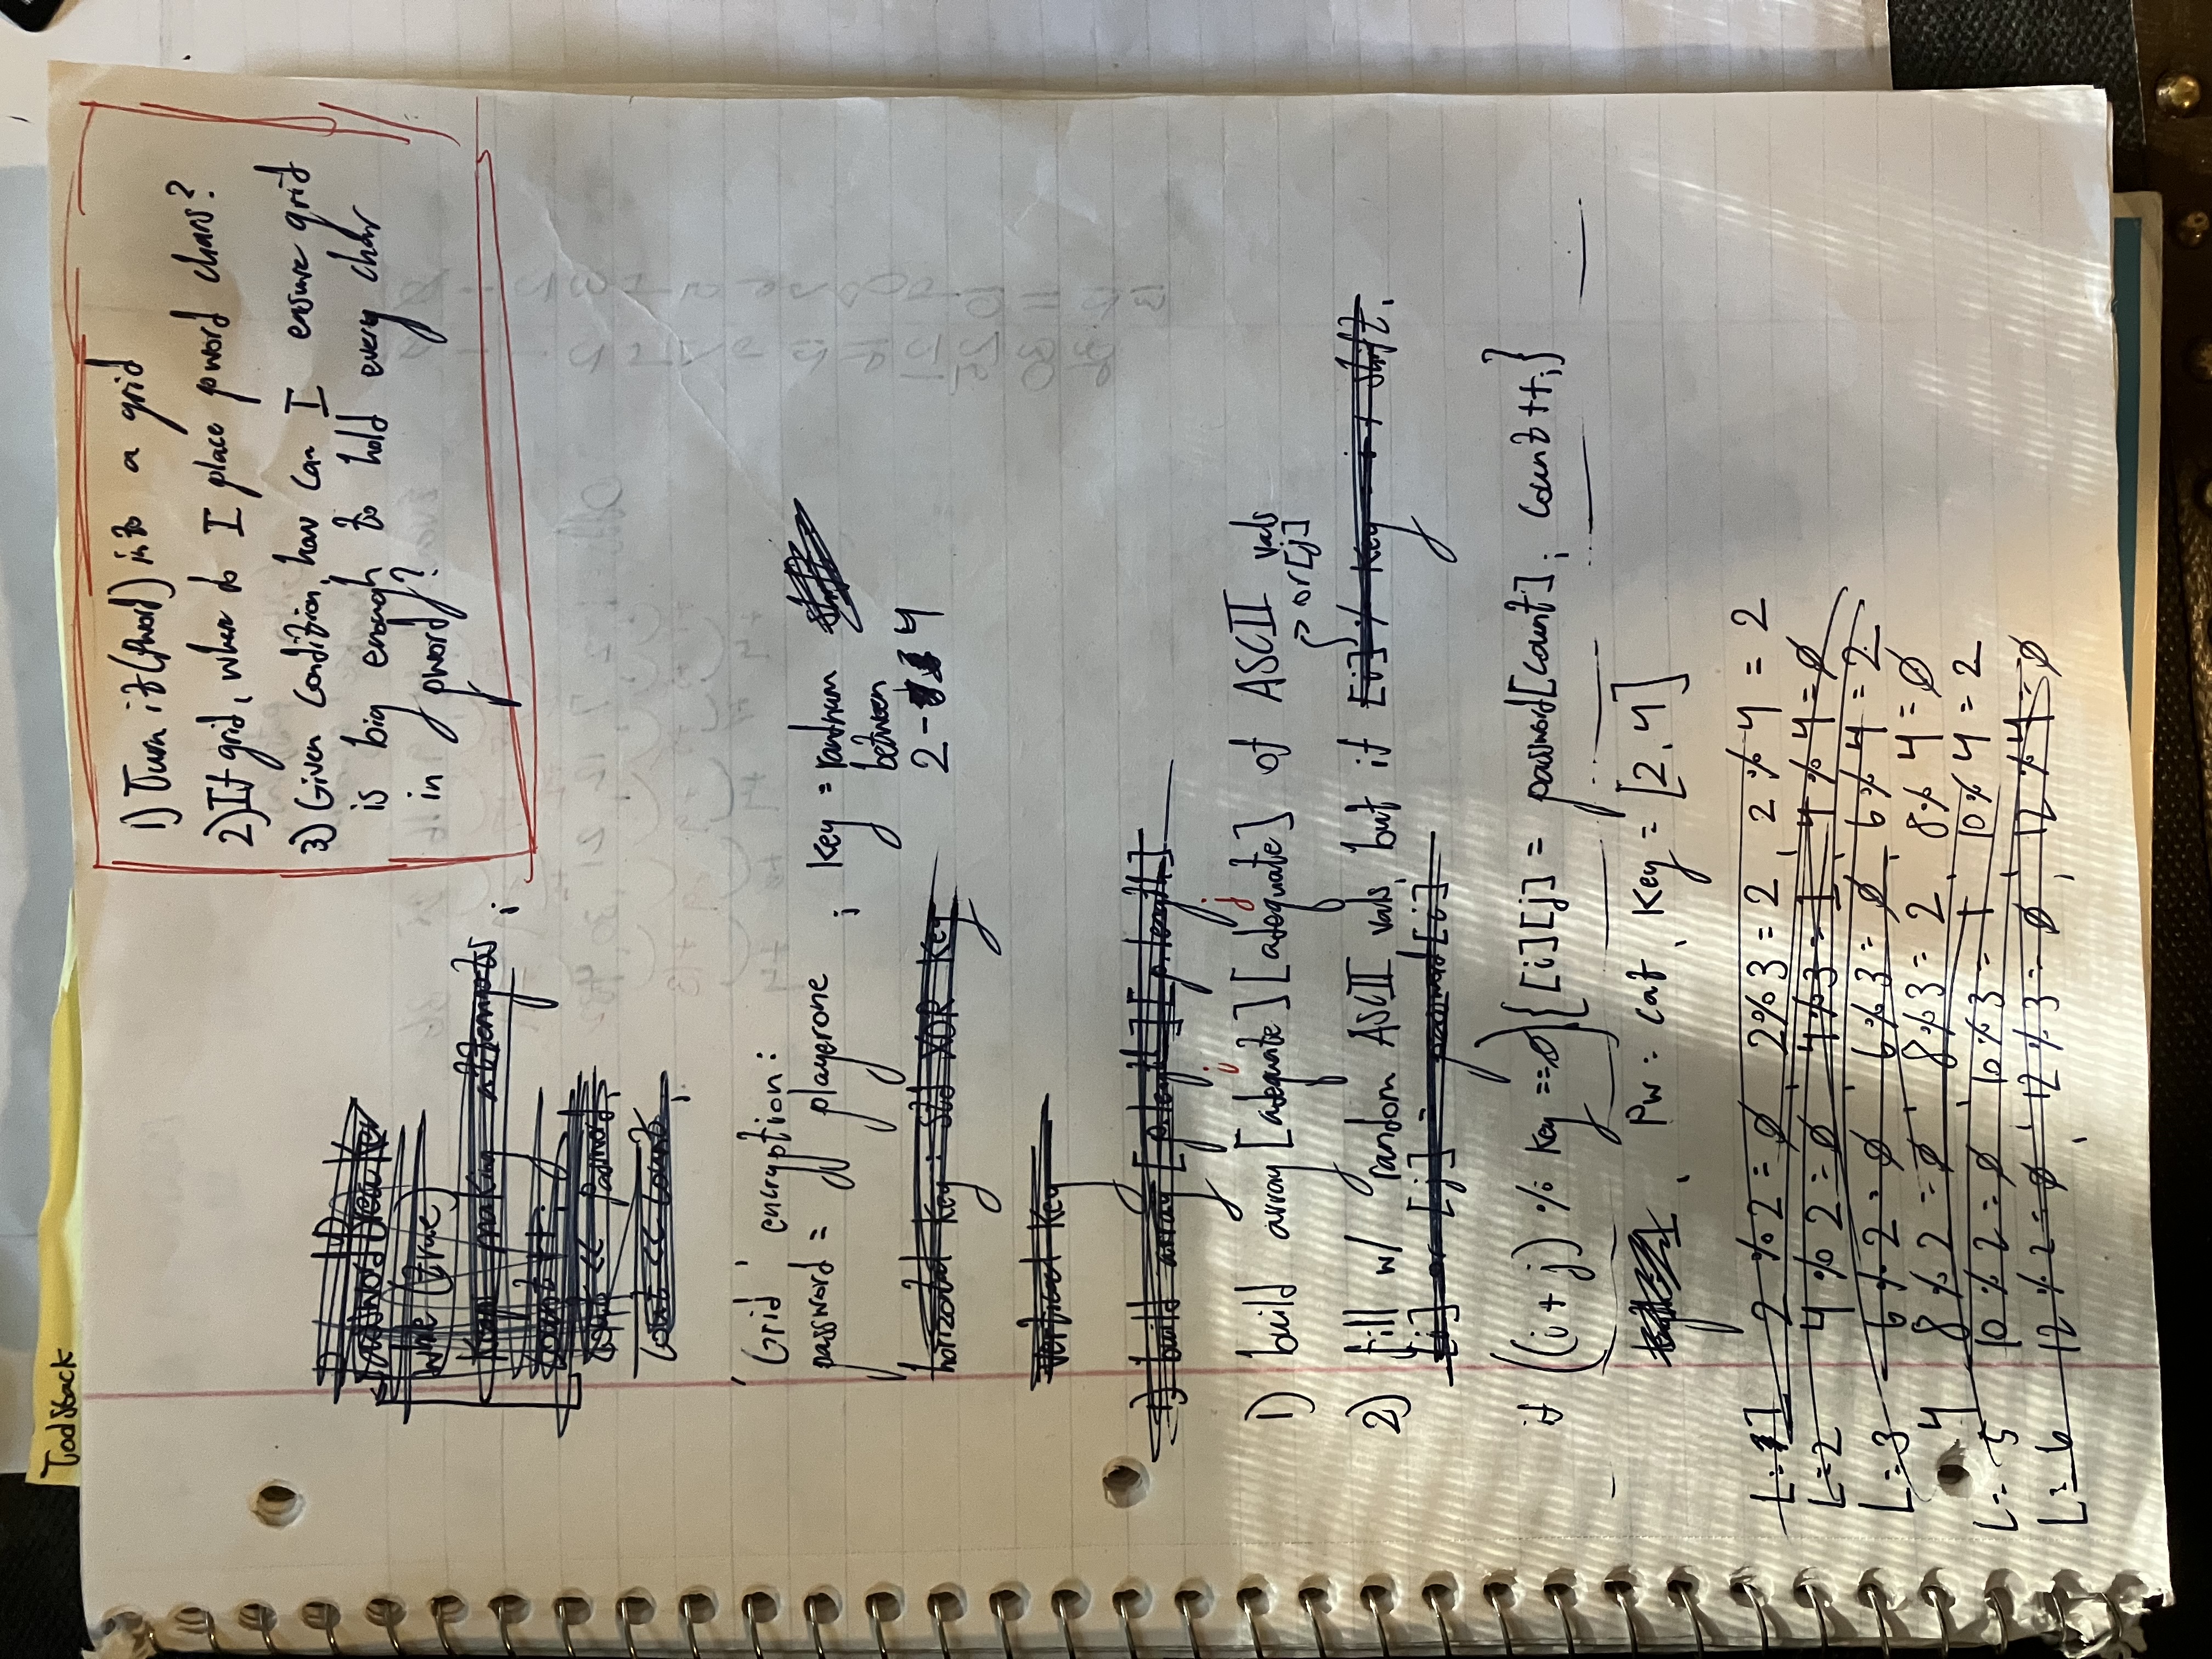 Todstack
1) Turn it (pword) into a grid
2) If grid, where do I place pword chars?
3) Given condition, how can I ensure grid
is big enough to hold every char
in pword?
Password Breaker
while (true)
Keep making attempts ;
Count ++;
cout << password;
cout << count;
'Grid' encryption:
password = playerone ; key = randnum
between
2 - 4
horizontal key: std XOR key
vertical key
1) build array [p.length] [p.length]
i j
1) build array [adequate] [adequate] of ASCII vals
→ or [j]
2) fill w/ random ASCII vals, but if [i] % key = i + shift,
[i] or [j] = password [i]
if ((i + j) % key == 0) { [i][j] = password[count]; count++; }
Pw: cat, key = [2,4]
L=1 2 % 2 = 0, 2%3 = 2, 2 % 4 = 2
L=2 4 % 2 = 0, 4%3 = 1, 4 % 4 = 0
L=3 6 % 2 = 0, 6%3 = 0, 6 % 4 = 2
4 8 % 2 = 0, 8%3 = 2, 8% 4 = 0
L= 5 10 % 2 = 0, 10%3 = 1 10% 4 = 2
L= 6 12 % 2 = 0, 12%3 = 0, 12 % 4 = 0